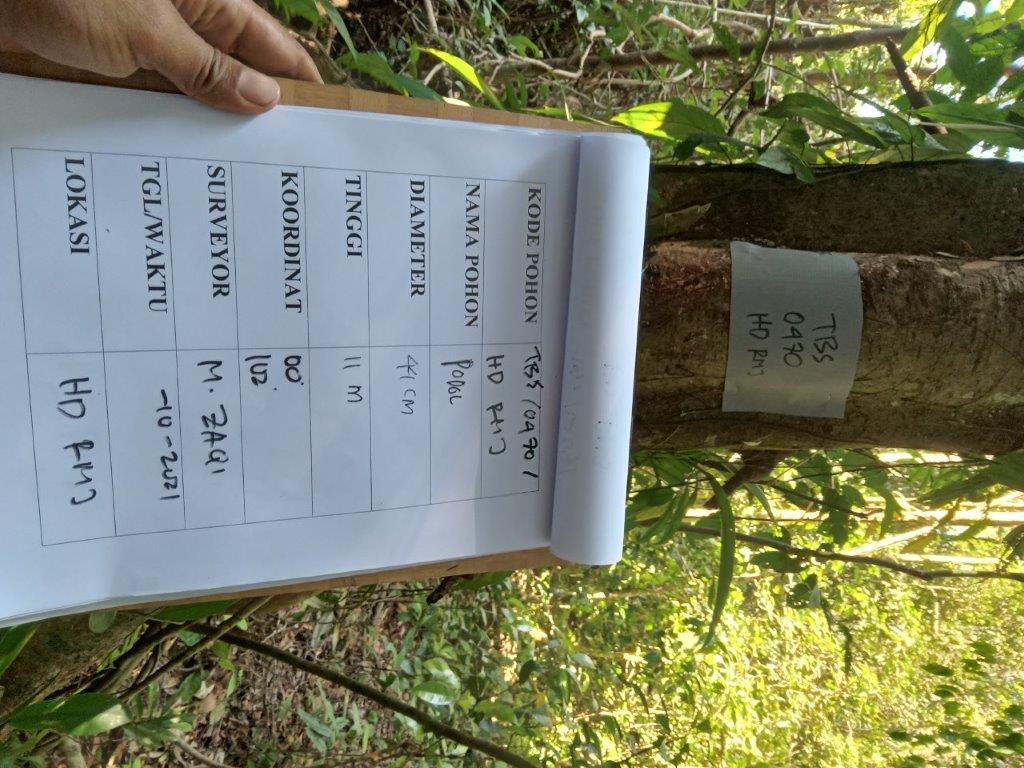 TBS
0470
HD RMJ
KODE POHON TBS/0470/
HD RMJ
NAMA POHON PODOL
DIAMETER 41 CM
TINGGI 11 M
KOORDINAT 00°
102°
SURVEYOR M. ZAQI
TGL/WAKTU -10-2021
LOKASI HD RMJ